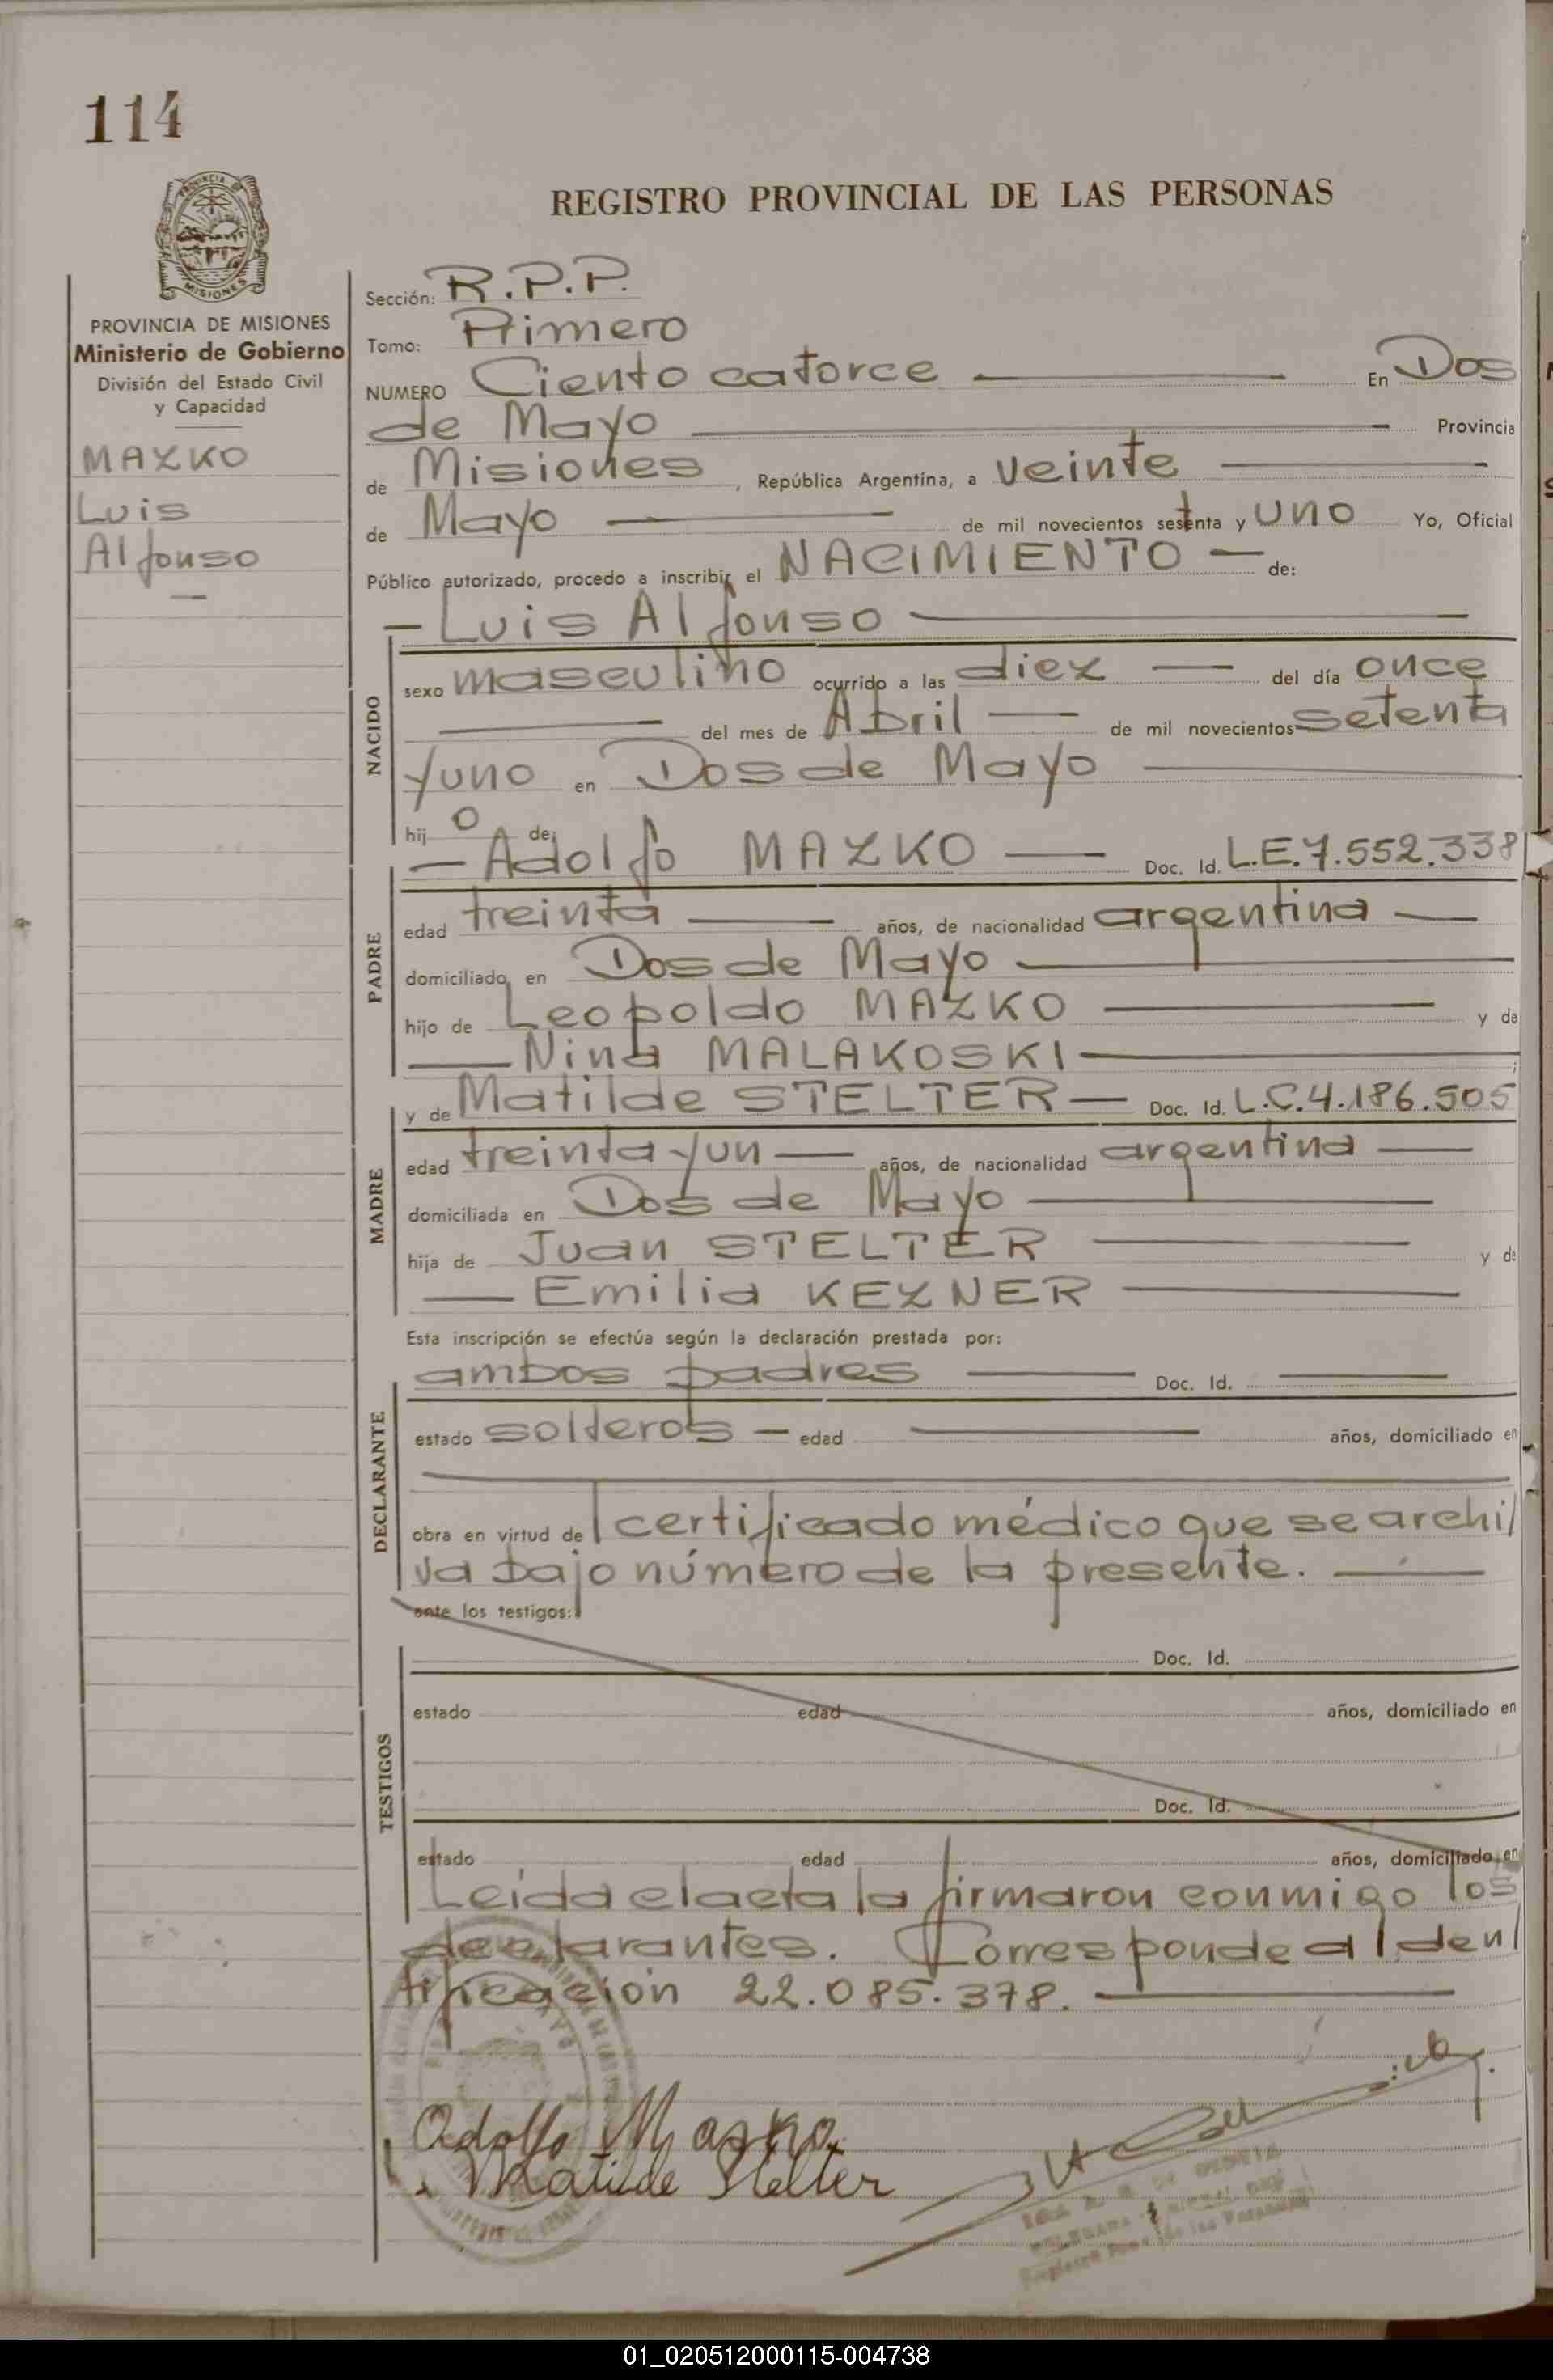 114
REGISTRO PROVINCIAL DE LAS PERSONAS
PROVINCIA DE MISIONES
Ministerio de Gobierno
División del Estado Civil
y Capacidad
MAZKO
Luis
Alfonso
Sección: R.P.P.
Tomo: Primero
NUMERO Ciento catorce En Dos
de Mayo Provincia
de Misiones, República Argentina, a veinte
de Mayo de mil novecientos sesenta y uno Yo, Oficial
Público autorizado, procedo a inscribir el NACIMIENTO de:
Luis Alfonso
NACIDO
sexo masculino ocurrido a las diez del día once
del mes de Abril de mil novecientos setenta
y uno en Dos de Mayo
hijo de
Adolfo MAZKO Doc. Id. L.E.7.552.338
PADRE
edad treinta años, de nacionalidad argentina
domiciliado en Dos de Mayo
hijo de Leopoldo MAZKO y de
Nina MALAKOSKI
y de Matilde STELTER Doc. Id. L.C.4.186.505
MADRE
edad treinta y un años, de nacionalidad argentina
domiciliada en Dos de Mayo
hija de Juan STELTER y de
Emilia KEZNER
Esta inscripción se efectúa según la declaración prestada por:
ambos padres Doc. Id.
DECLARANTE
estado solteros edad años, domiciliado en
obra en virtud del certificado médico que se archi
va bajo número de la presente.
ante los testigos:
Doc. Id.
TESTIGOS
estado edad años, domiciliado en
Doc. Id.
estado edad años, domiciliado en
Leida el acta la firmaron conmigo los
declarantes. Corresponde a Iden
tificación 22.085.378.
Adolfo Mazko
Matilde Stelter
01_020512000115-004738